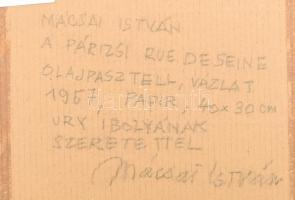 MÁCSAI ISTVÁN
A PÁRIZSI RUE DE SEINE
OLAJPASZTELL, VÁZLAT
1967, PAPIR, 40 x 30 cm
URY IBOLYÁNAK
SZERETETTEL
Mácsai István